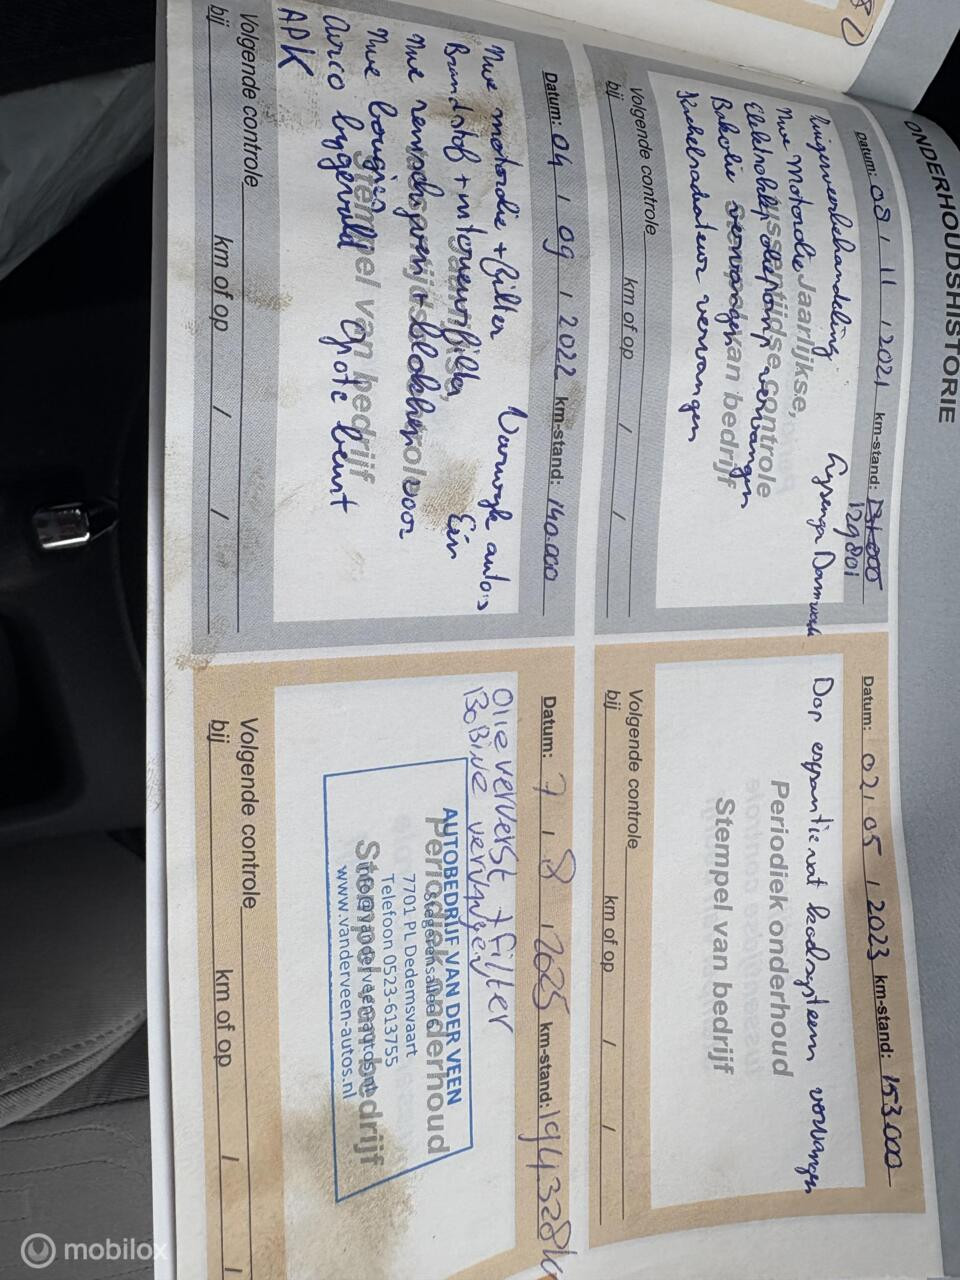 ONDERHOUDSHISTORIE
Datum: 08 / 11 / 2021 km-stand: 131.000
129801
Nwe Motorolie
vervangen
Bakolie vervangen
Kachelradiateur vervangen
Jaarlijkse,
tussentijdse controle
Stempel van bedrijf
Volgende controle
bij km of op / /
Datum: 02 / 05 / 2023 km-stand: 153.000
Dop expantievat koelsysteem vervangen
Periodiek onderhoud
Stempel van bedrijf
Volgende controle
bij km of op / /
Datum: 04 / 09 / 2022 km-stand: 140.000
Nwe motorolie + filter
Brandstof + interieurfilter
Nwe remschijven + blokken voor
Nwe bougies
Airco bijgevuld Grote beurt
APK
Stempel van bedrijf
Volgende controle
bij km of op / /
Datum: 7 / 8 / 2025 km-stand: 194328 km
Olie ververst + Filter
BoBine vervangen
Periodiek onderhoud
Stempel van bedrijf
AUTOBEDRIJF VAN DER VEEN
7701 PL Dedemsvaart
Telefoon 0523-613755
info@vanderveenautos.nl
www.vanderveen-autos.nl
Volgende controle
bij km of op / /
mobilox